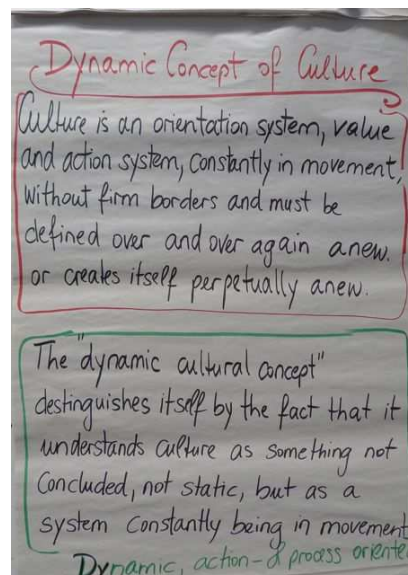 Dynamic Concept of Culture
Culture is an orientation system, value
and action system, constantly in movement,
without firm borders and must be
defined over and over again anew.
or creates itself perpetually anew.
The "dynamic cultural concept"
destinguishes itself by the fact that it
understands culture as something not
concluded, not static, but as a
system constantly being in movement
Dynamic, action- & process oriente